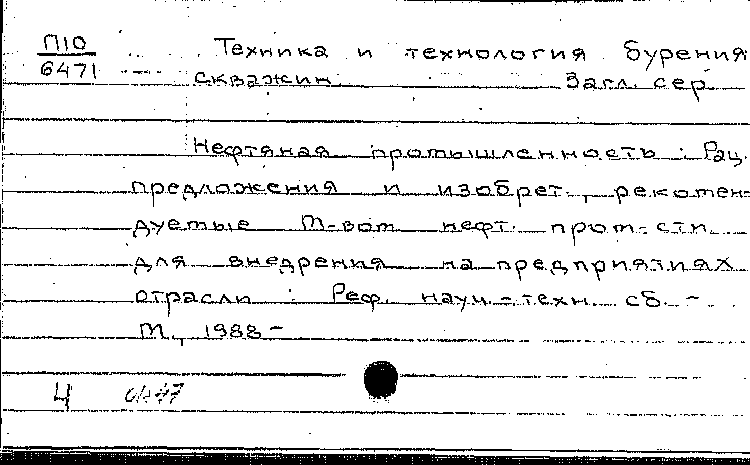 П10 Техника и технология бурения
6471 скважин. Загл. сер.
Нефтяная промышленность : Рац.
предложения и изобрет., рекомен-
дуемые М-вом нефт. пром-сти
для внедрения на предприятиях
отрасли : Реф. науч.-техн. сб. -
М., 1988-
Ч